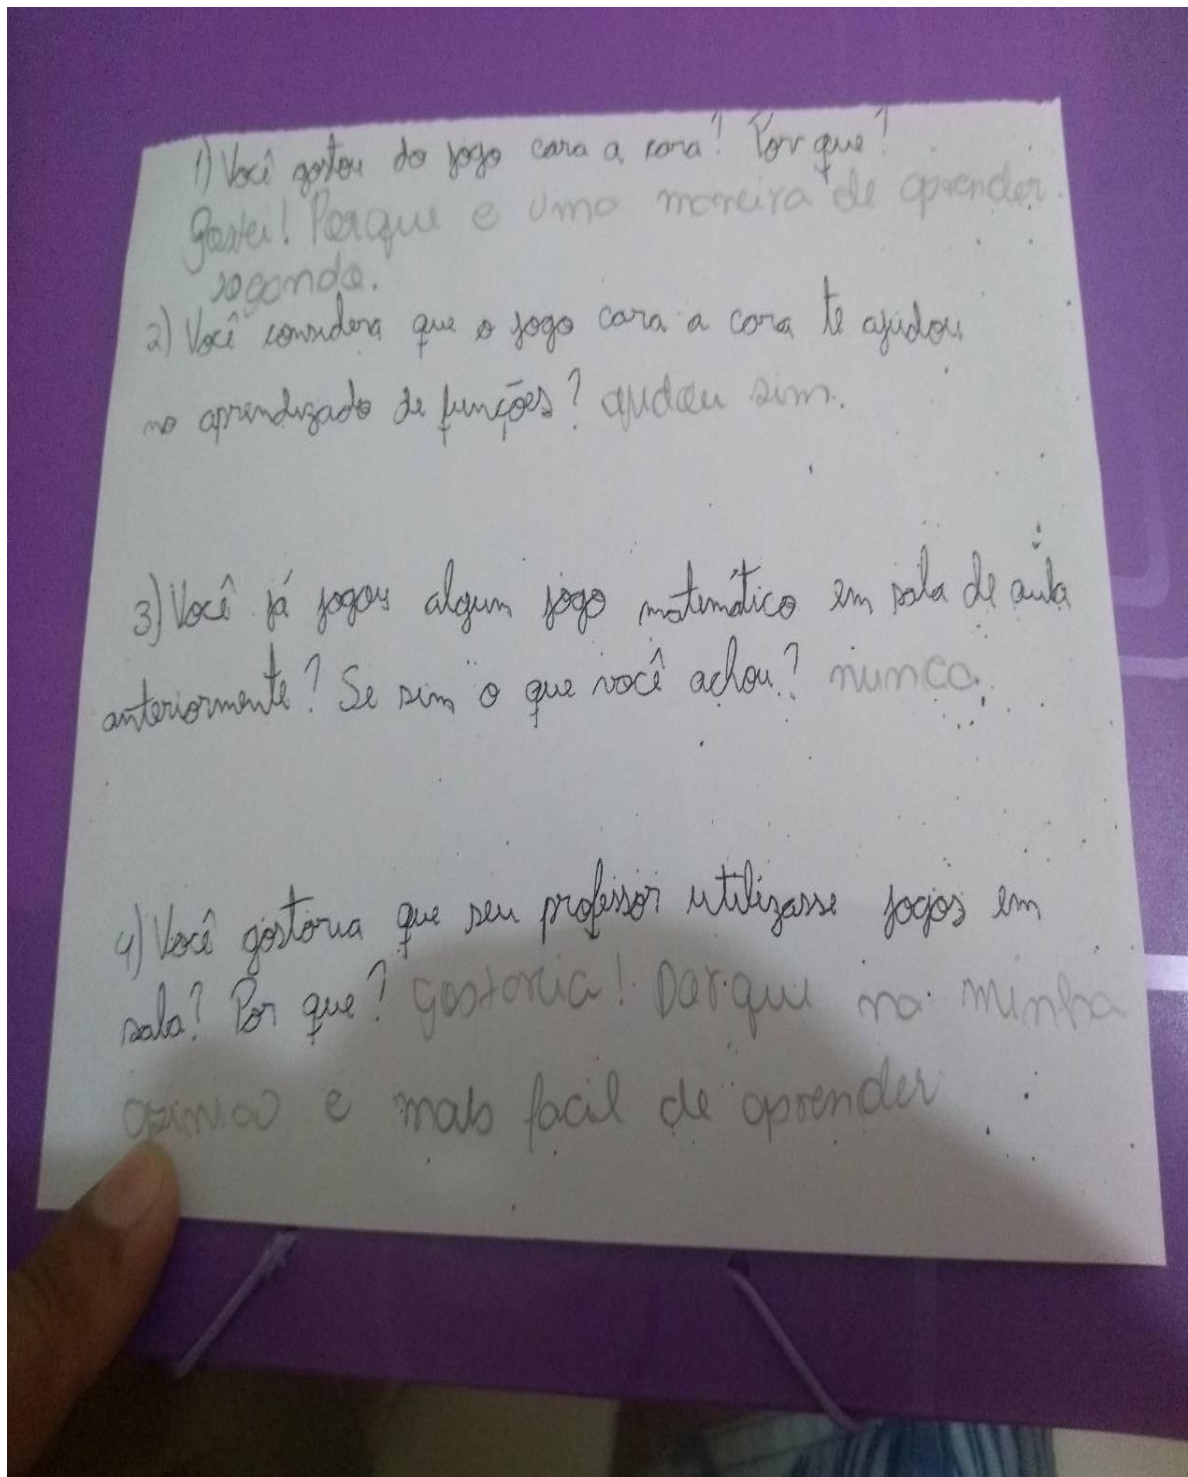 1) Você gostou do jogo cara a cara? Por que?
Gostei! Porque e uma maneira de aprender
jogando.
2) Você considera que o jogo cara a cara te ajudou
no aprendizado de funções? ajudou sim.
3) Você já jogou algum jogo matemático em sala de aula
anteriormente? Se sim o que você achou? nunca.
4) Você gostaria que seu professor utilizasse jogos em
sala? Por que? Gostaria! Porque na minha
opinião e mais facil de aprender